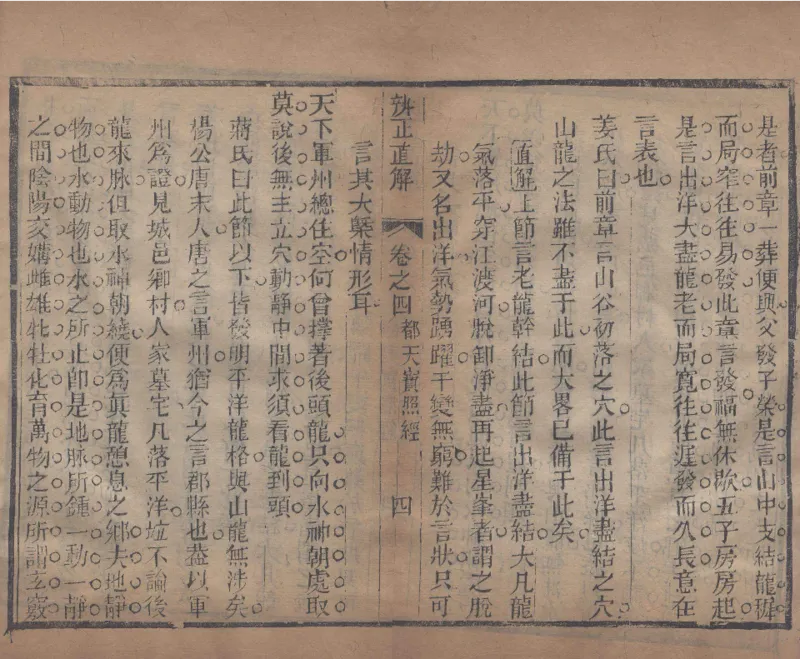 是者前章一葬便興父發子榮是言山中支結龍穉
而局窄往往易發此章言發福無休歇五子房房起
是言出洋大盡龍老而局寬往往遲發而久長意在
言表也
姜氏曰前章言山谷初落之穴此言出洋盡結之穴
山龍之法雖不盡于此而大畧已備于此矣
直解上節言老龍幹結此節言出洋盡結大凡龍
氣落平穿江渡河脫卸淨盡再起星峯者謂之脫
劫又名出洋氣勢踴躍千變無窮難於言狀只可
辨正直解 卷之四 都天寶照經 四
言其大槩情形耳
天下軍州總住空何曾撐著後頭龍只向水神朝處取
莫說後無主立穴動靜中間求須看龍到頭
蔣氏曰此節以下皆發明平洋龍格與山龍無涉矣
楊公唐末人唐之言軍州猶今之言郡縣也蓋以軍
州爲證見城邑鄉村人家墓宅凡落平洋竝不論後
龍來脉但取水神朝繞便爲眞龍憩息之鄉夫地靜
物也水動物也水之所止卽是地脉所鍾一動一靜
之間陰陽交媾雌雄牝牡化育萬物之源所謂玄竅